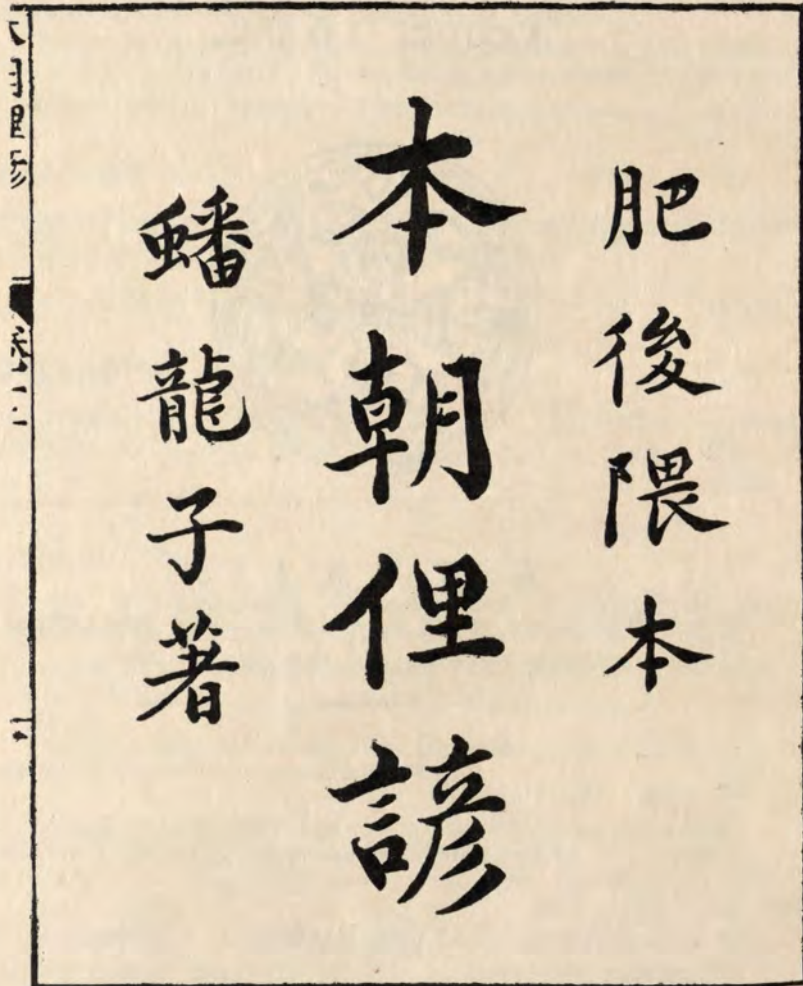 肥後隈本
本朝俚諺
蟠龍子著